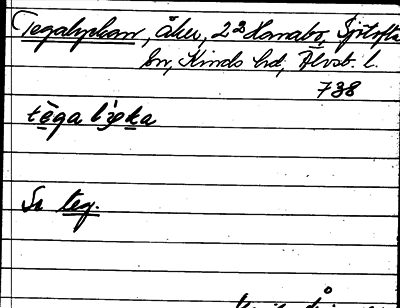 Tegalyckan, åker, 2²Hanabo, Sjötofta
sn, Kinds hd, Älvsb. l.
738
tēga lỳcka
Se teg.